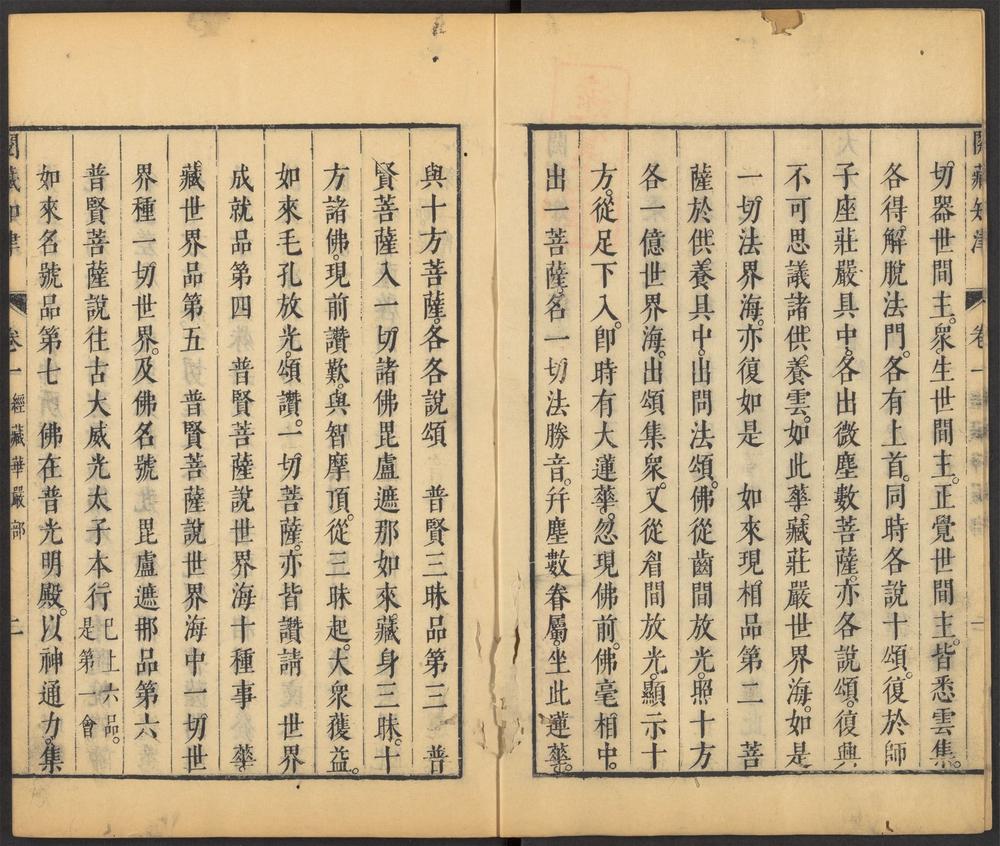 閱藏知津 卷一
切器世間主。衆生世間主。正覺世間主。皆悉雲集。
各得解脫法門。各有上首。同時各說十頌。復於師
子座莊嚴具中。各出微塵數菩薩。亦各說頌。復興
不可思議諸供養雲。如此華藏莊嚴世界海。如是
一切法界海。亦復如是 如來現相品第二 菩
薩於供養具中。出問法頌。佛從齒間放光。照十方
各一億世界海。出頌集衆。又從眉間放光。顯示十
方。從足下入。卽時有大蓮華。忽現佛前。佛毫相中。
出一菩薩。名一切法勝音。幷塵數眷屬。坐此蓮華。
與十方菩薩。各各說頌 普賢三昧品第三 普
賢菩薩入一切諸佛毘盧遮那如來藏身三昧。十
方諸佛。現前讚歎。與智摩頂。從三昧起。大衆獲益。
如來毛孔放光。頌讚。一切菩薩。亦皆讚請 世界
成就品第四 普賢菩薩說世界海十種事 華
藏世界品第五 普賢菩薩說世界海中一切世
界種一切世界。及佛名號 毘盧遮那品第六
普賢菩薩說往古大威光太子本行 已上六品。是第一會
如來名號品第七 佛在普光明殿。以神通力。集
閱藏知津 卷一 經藏華嚴部 二